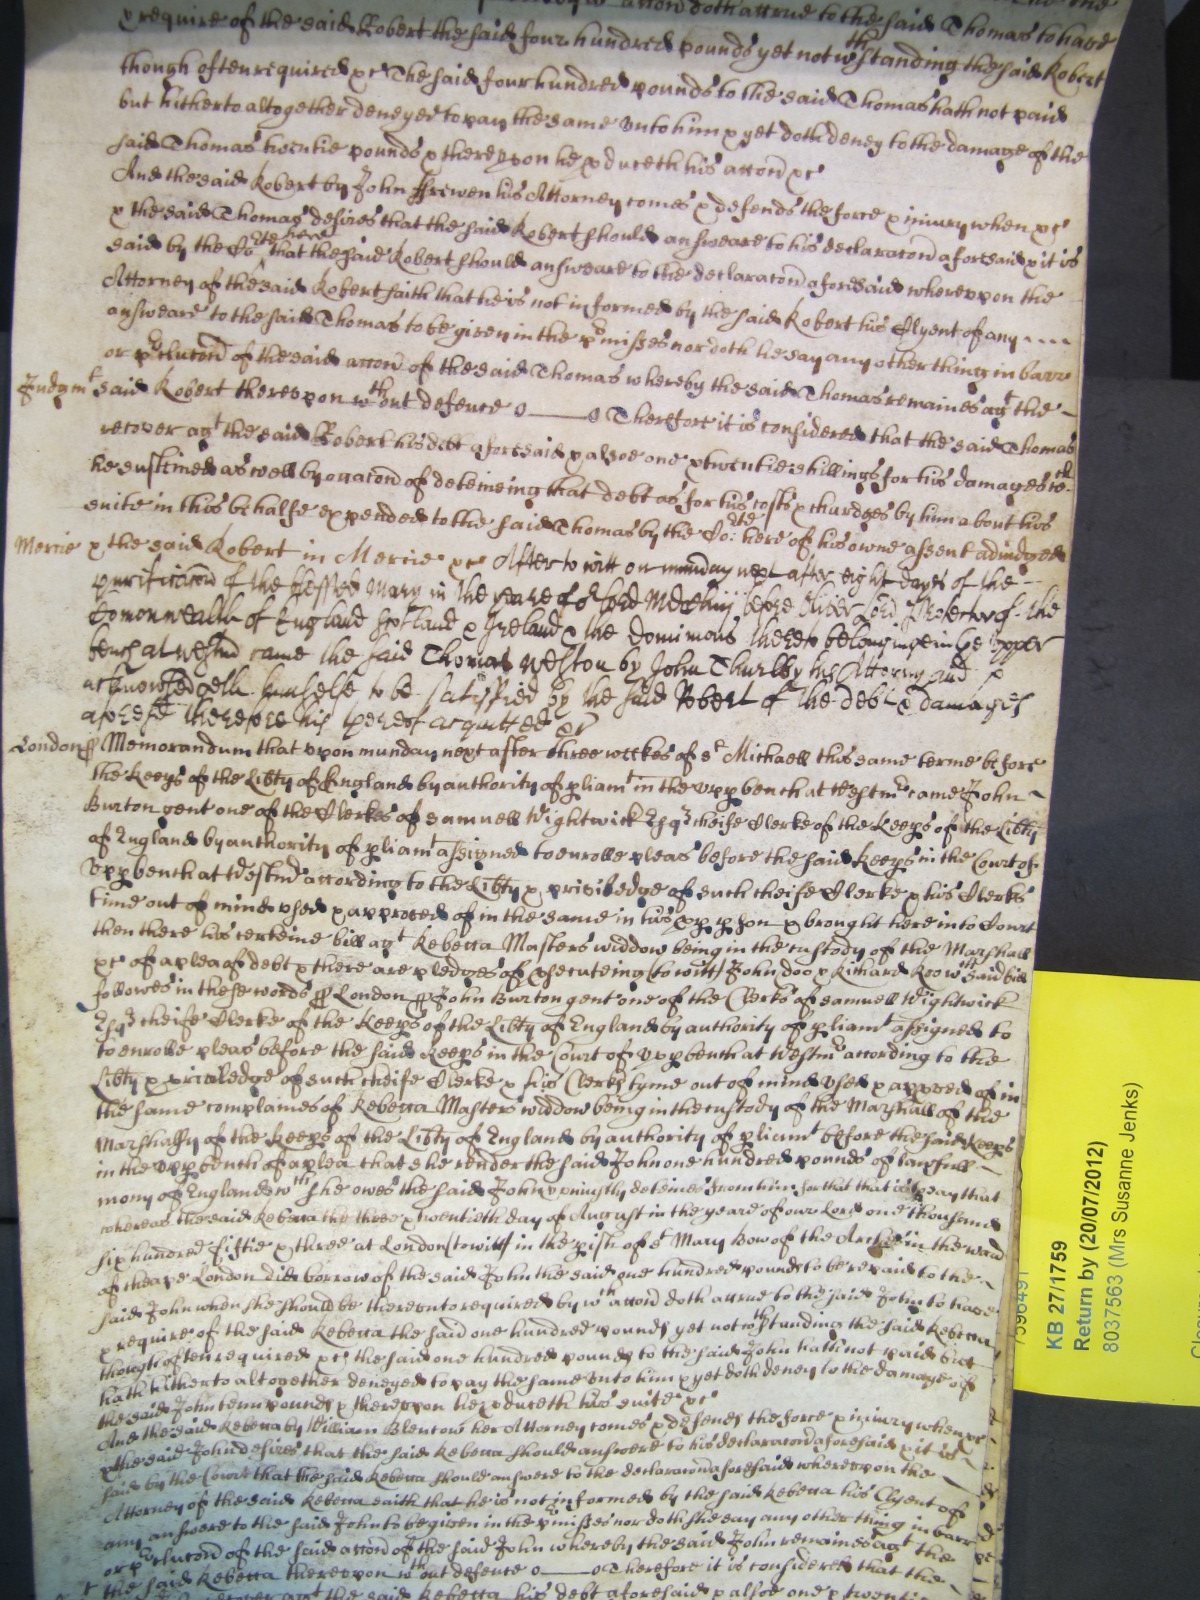 accon doth accrue to the said Thomas to have
& require of the said Robert the said four hundred pounds yet notwthstanding the said Robert
though often required &c The said four hundred pounds to the said Thomas hath not paid
but hitherto altogether denyed to pay the same unto him & yet doth deney to the damage of the
said Thomas twentie pounds & thereupon he pduceth his accon &c
And the said Robert by John ffrewen his Attorney comes & defends the force & iniury when &c
& the said Thomas desires that the said Robert should answeare to his declaracon aforesaid & it is
said by the Co:rte here that the said Robert should answeare to the declaracon aforesaid whereupon the
Attorney of the said Robert saith that he is not informed by the said Robert his Clyent of any ....
answeare to the said Thomas to be given in the pmisses nor doth he say any other thing in barre
or pclucon of the said accon of the said Thomas whereby the said Thomas remaines agt the
Judgmt said Robert thereupon wthout defence o——o Therefore it is considered that the said Thomas
recover agt the said Robert his debt aforesaid & alsoe one & twentie shillings for his damages wch
he susteined as well by occacon of deteineing that debt as for his costs & chardges by him about his
suite in this behalfe expended to the said Thomas by the Co:rte here of his owne assent adiudged
Mercie & the said Robert in Mercie &c After to witt on munday next after eight dayes of the
purificacon of the blessed Mary in the yeare of or Lord before Oliver Lord Protector of the
Comonwealth of England Scotland & Ireland & the dominions thereto belonginge in the upper
bench at Westmr came the said Thomas Weston by John Thurlby his Attorny and
acknowledgeth himselfe to be satisfied by the said Robert of the debt & damages
aforesd therefore hee thereof acquitted &c
London ss Memorandum that upon munday next after three weekes of St Michaell this same terme before
the Keeps of the Libty of England by authority of pliamt in the upp bench at Westmr came John
Burton gent one of the Clerkes of Samuell Wightwick Esqr cheife Clerke of the Keeps of the Libty
of England by authority of pliamt assigned to enrolle pleas before the said Keeps in the Court of
Upp bench at Westmr according to the Libty & priviledge of such cheife Clerke & his Clerks
time out of mind used & approved of in the same in his pp pson & brought here into Court
then there his certeine bill agt Rebecca Masters widdow being in the custody of the Marshall
&c of a plea of debt & there are pledges of psecuteing (to witt) John doo & Richard Roo wch said bill
followes in these words ss London ss John Burton gent one of the Clerks of Samuell Wightwick
Esqr cheife Clerke of the Keeps of the Libty of England by authority of pliamt assigned to
to enrolle pleas before the said Keeps in the Court of Upp bench at Westmr according to the
Libty & priviledge of such cheife Clerke & his Clerks tyme out of mind used & approved of in
the same complaines of Rebecca Masters widdow being in the custody of the Marshall of the
Marshalsy of the Keeps of the Libty of England by authority of pliamt before the said Keeps
in the upp bench of a plea that she render the said John one hundred pounds of lawfull
mony of England wch she owes the said John & uniustly deteines from him for that that is to say that
whereas the said Rebecca the three & twentieth day of August in the yeare of our Lord one thousand
six hundred fiftie & three at London (to witt) in the pish of St Mary Bow of the Arches in the ward
of Cheape London did borrow of the said John the said one hundred pounds to be repaid to the
said John when she should be thereunto required by wch accon doth accrue to the said John to have
& require of the said Rebecca the said one hundred pounds yet notwthstanding the said Rebecca
though often required &c the said one hundred pounds to the said John hath not paid but
hath hitherto altogether denyed to pay the same unto him & yet doth deney to the damage of
the said John tenn pounds & thereupon he pduceth his suite &c
And the said Rebecca by William Blencow her Attorney comes & defends the force & iniury when &c
& the said John desires that the said Rebecca should answere to his declaracon aforesaid & it is
said by the Court that the said Rebecca should answere to the declaracon aforesaid whereupon the
Attorney of the said Rebecca saith that he is not informed by the said Rebecca his Clyent of
any answere to the said John to be given in the pmisses nor doth she say any other thing in barr
or pclucon of the said accon of the said John whereby the said John remaines agt the
the said Rebecca thereupon wthout defence o——o Therefore it is considered that the
recover agt the said Rebecca his debt aforesaid & alsoe one & twentie
75964391
KB 27/1759
Return by (20/07/2012)
8037563 (Mrs Susanne Jenks)